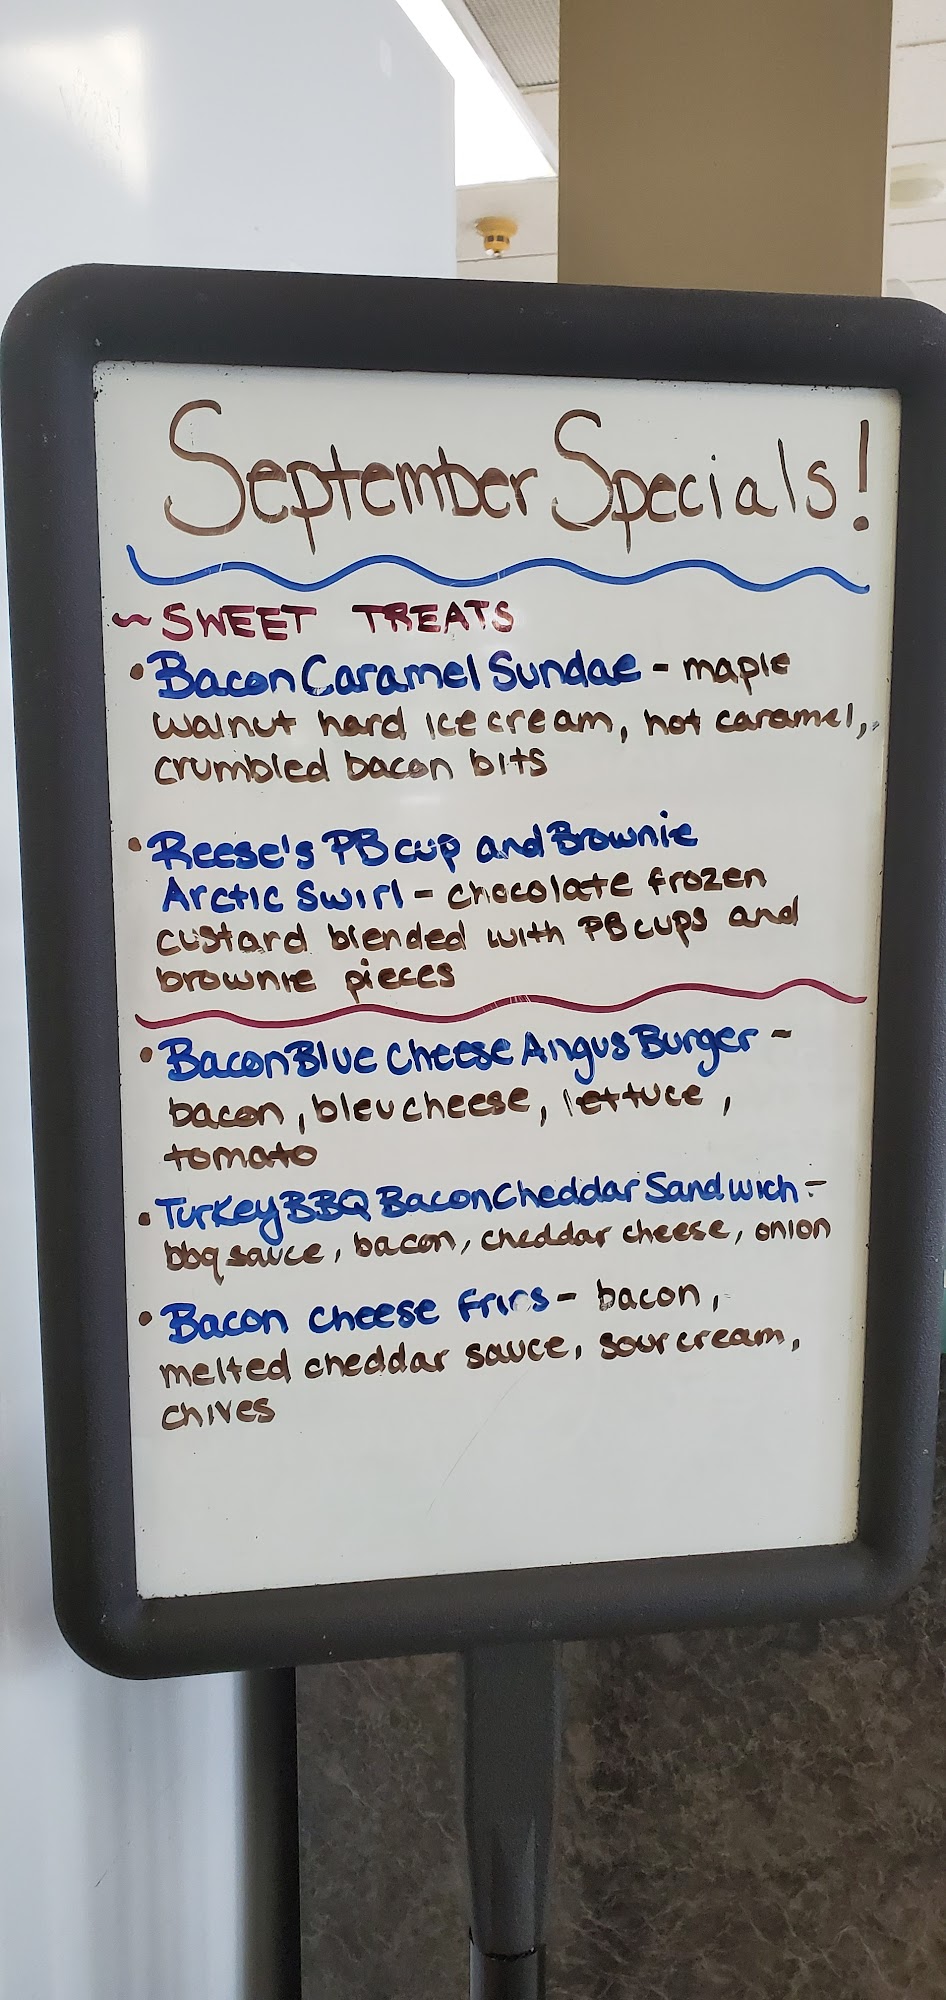 September Specials!
~ SWEET TREATS
• Bacon Caramel Sundae - maple
walnut hard ice cream, hot caramel,
crumbled bacon bits
• Reese's PB cup and Brownie
Arctic Swirl - chocolate frozen
custard blended with PB cups and
brownie pieces
• Bacon Blue Cheese Angus Burger -
bacon, bleu cheese, lettuce,
tomato
• Turkey BBQ Bacon Cheddar Sandwich -
bbq sauce, bacon, cheddar cheese, onion
• Bacon Cheese Fries - bacon,
melted cheddar sauce, sour cream,
chives